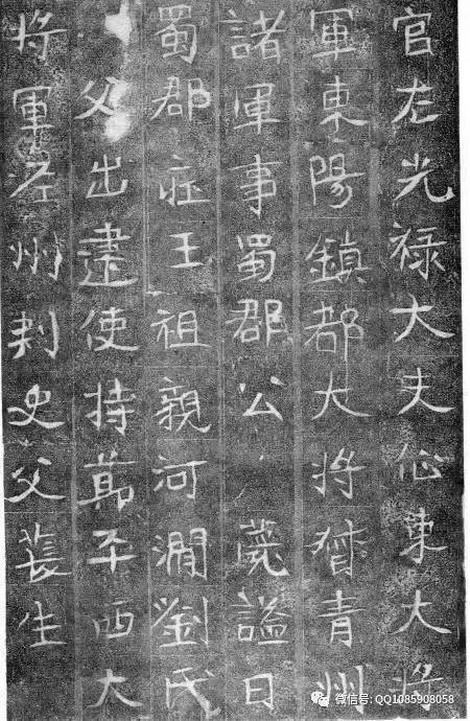 官左光禄大夫征東大將
軍東陽鎮都大將督青州
諸軍事蜀郡公薨謚曰
蜀郡莊王祖親河澗劉氏
父出建使持節平西大
將軍泾州刺史父萇生
微信号: QQ1085908058